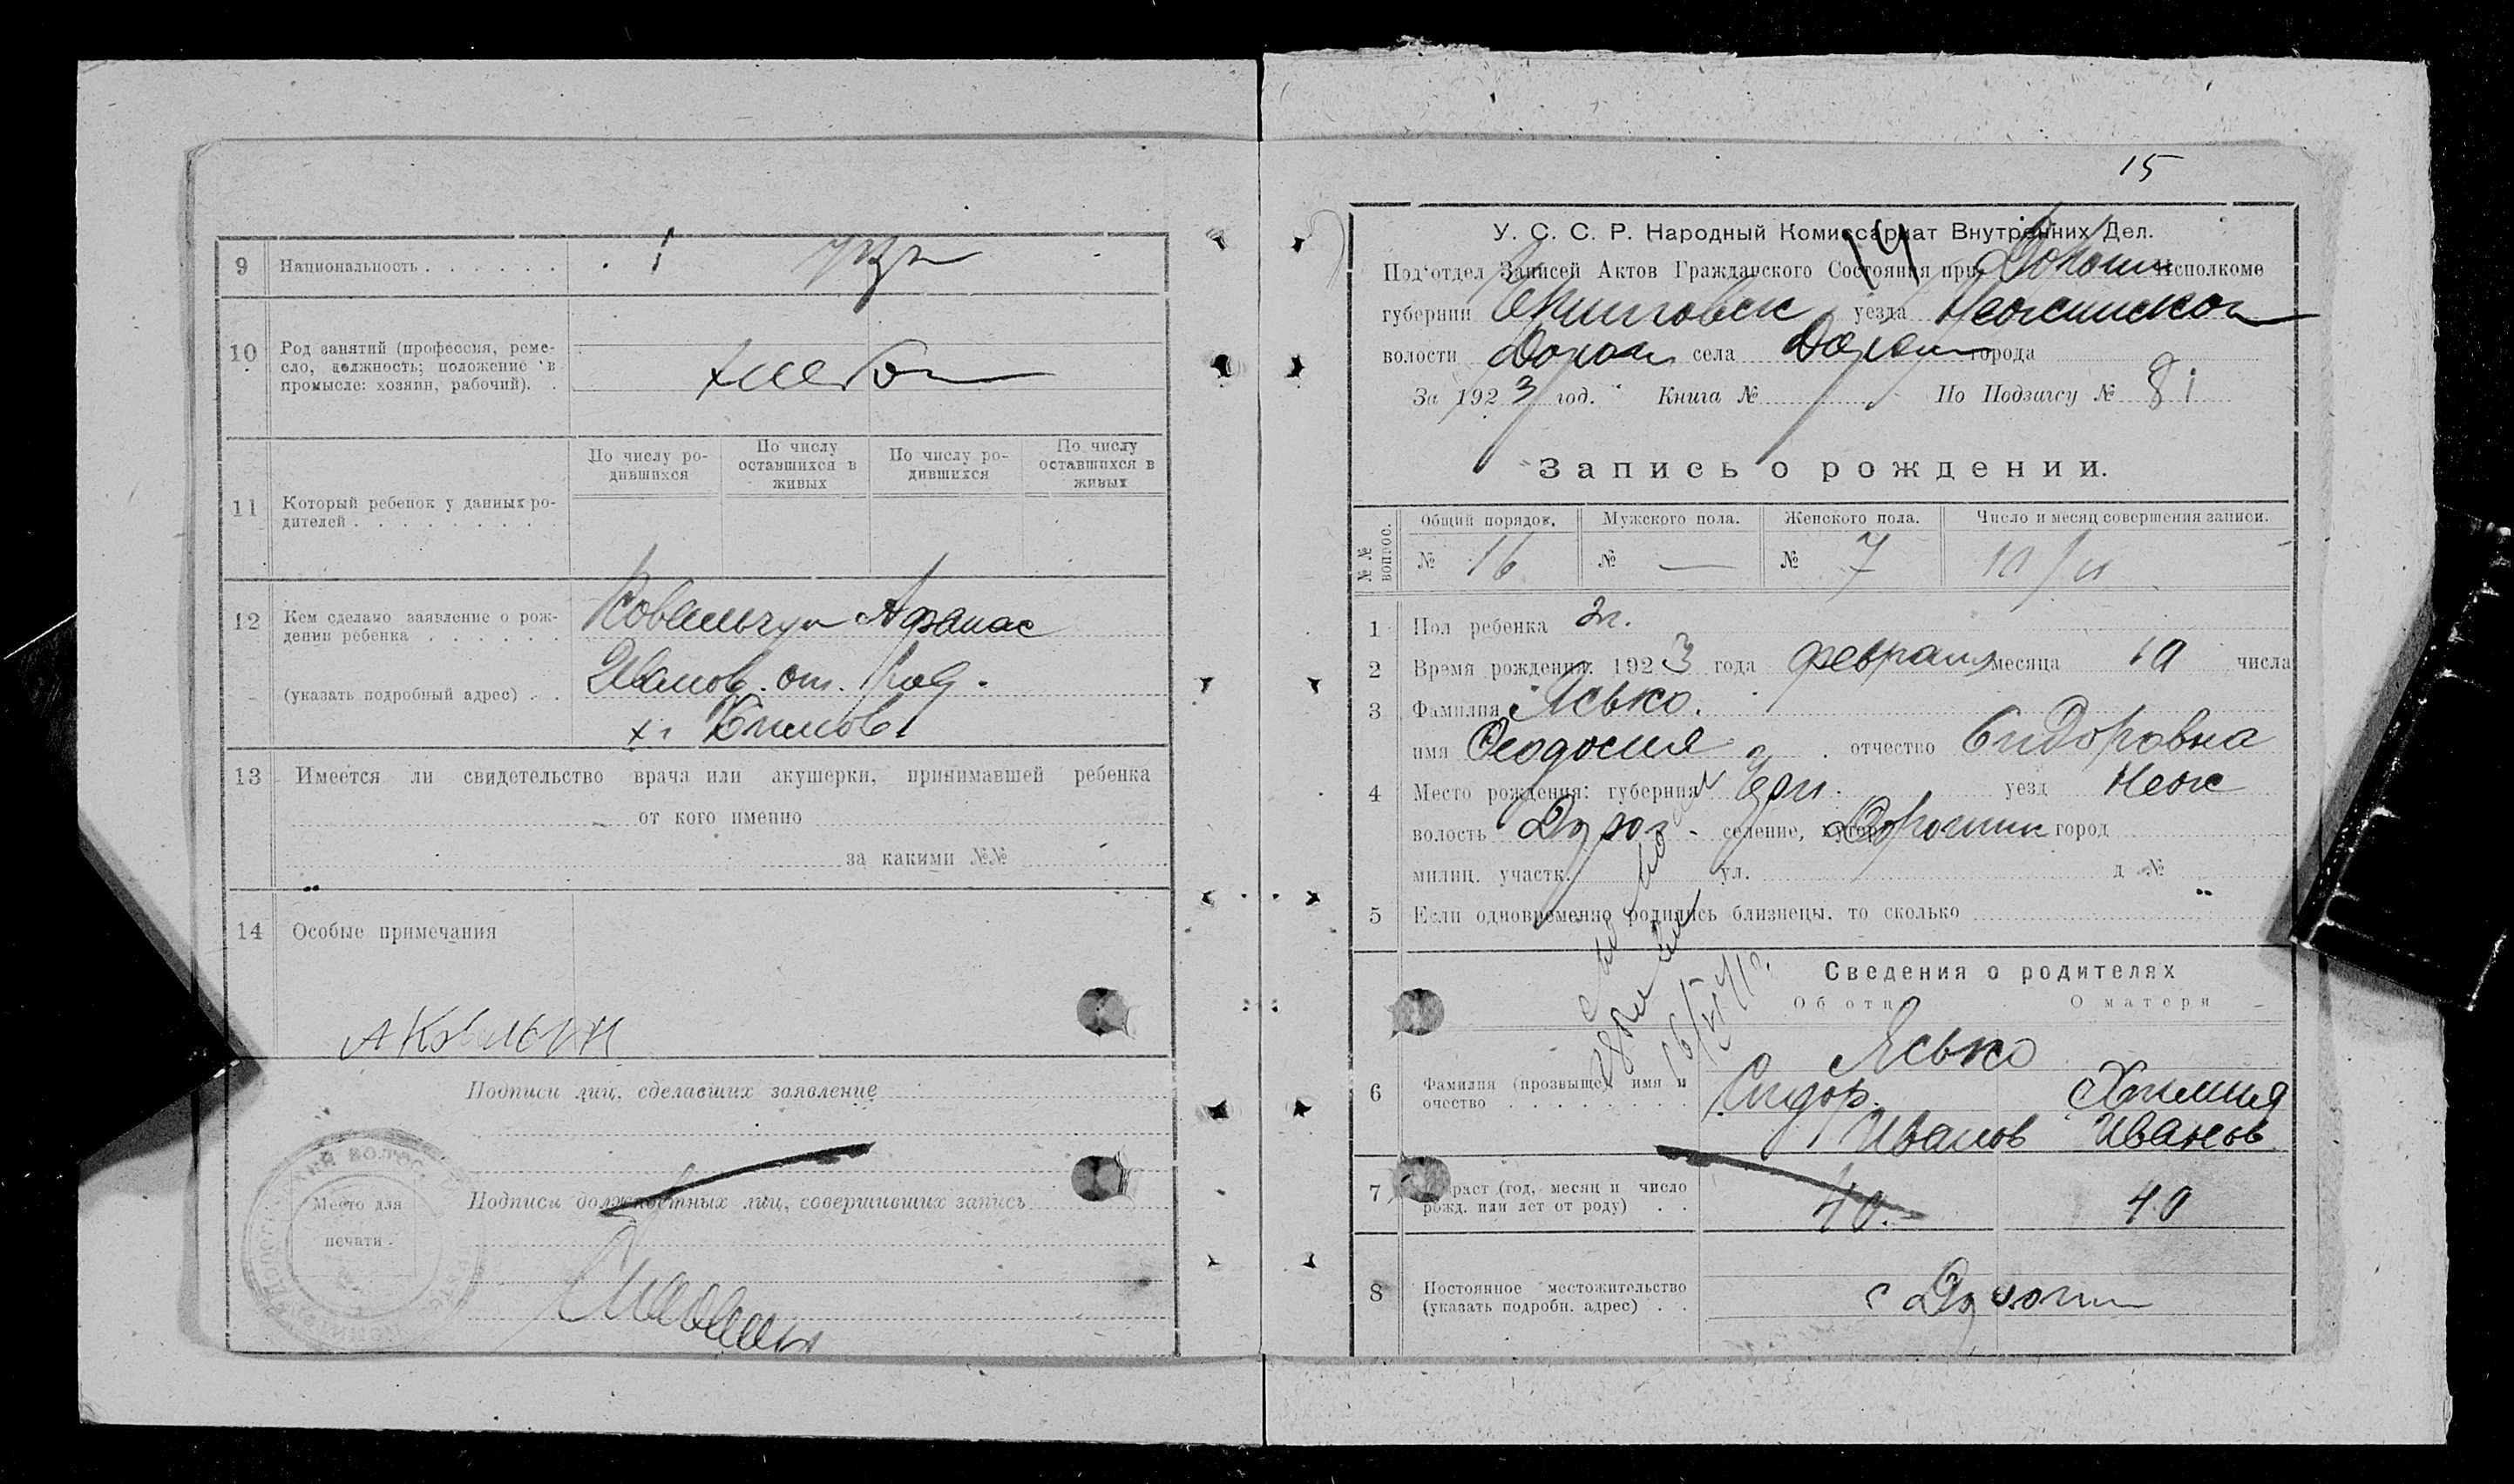 9 Национальность . . . . . . укр
10 Род занятий (профессия, реме-
сло, должность; положение в
промысле: хозяин, рабочий). . хлебоп
По числу ро-
дившихся
По числу
оставшихся в
живых
По числу ро-
дившихся
По числу
оставшихся в
живых
11 Который ребенок у данных ро-
дителей . . . . . . . . .
12 Кем сделано заявление о рож-
дении ребенка . . . . . . Ковальчук Афанас
(указать подробный адрес) . . Иванов.
х.
13 Имеется ли свидетельство врача или акушерки, принимавшей ребенка
от кого именно
за какими №№
14 Особые примечания
Подписи лиц, сделавших заявление
Место для
печати.
Подписи должностных лиц, совершивших запись
15
14
У. С. С. Р. Народный Комиссариат Внутренних Дел.
Под'отдел Записей Актов Гражданского Состояния при Дорогин Исполкоме
губернии Черниговск уезда Нежинского
волости Дорог села Дорогин города
За 1923 год. Книга № По Подзагсу № 81
Запись о рождении.
№№ вопрос.
Общий порядок.
Мужского пола.
Женского пола.
Число и месяц совершения записи.
№ 16
№ —
№ 7
10/II
1 Пол ребенка ж.
2 Время рождения: 1923 года февраля месяца 10 числа
3 Фамилия Ясько.
имя Феодосия отчество Сидоровна
4 Место рождения: губерния Чер. уезд Неж
волость Дорог. селение, хутор Дорогин город
милиц. участк. ул. д №
5 Если одновременно родились близнецы, то сколько
Сведения о родителях
Об отце
О матери
Ясько
6 Фамилия (прозвище) имя и
очество . . . . . . . . Сидор Химия
Иванов Иванов
7 Возраст (год, месяц и число
рожд. или лет от роду) . . 40. 40
8 Постоянное местожительство
(указать подробн. адрес) . . с Дорогин